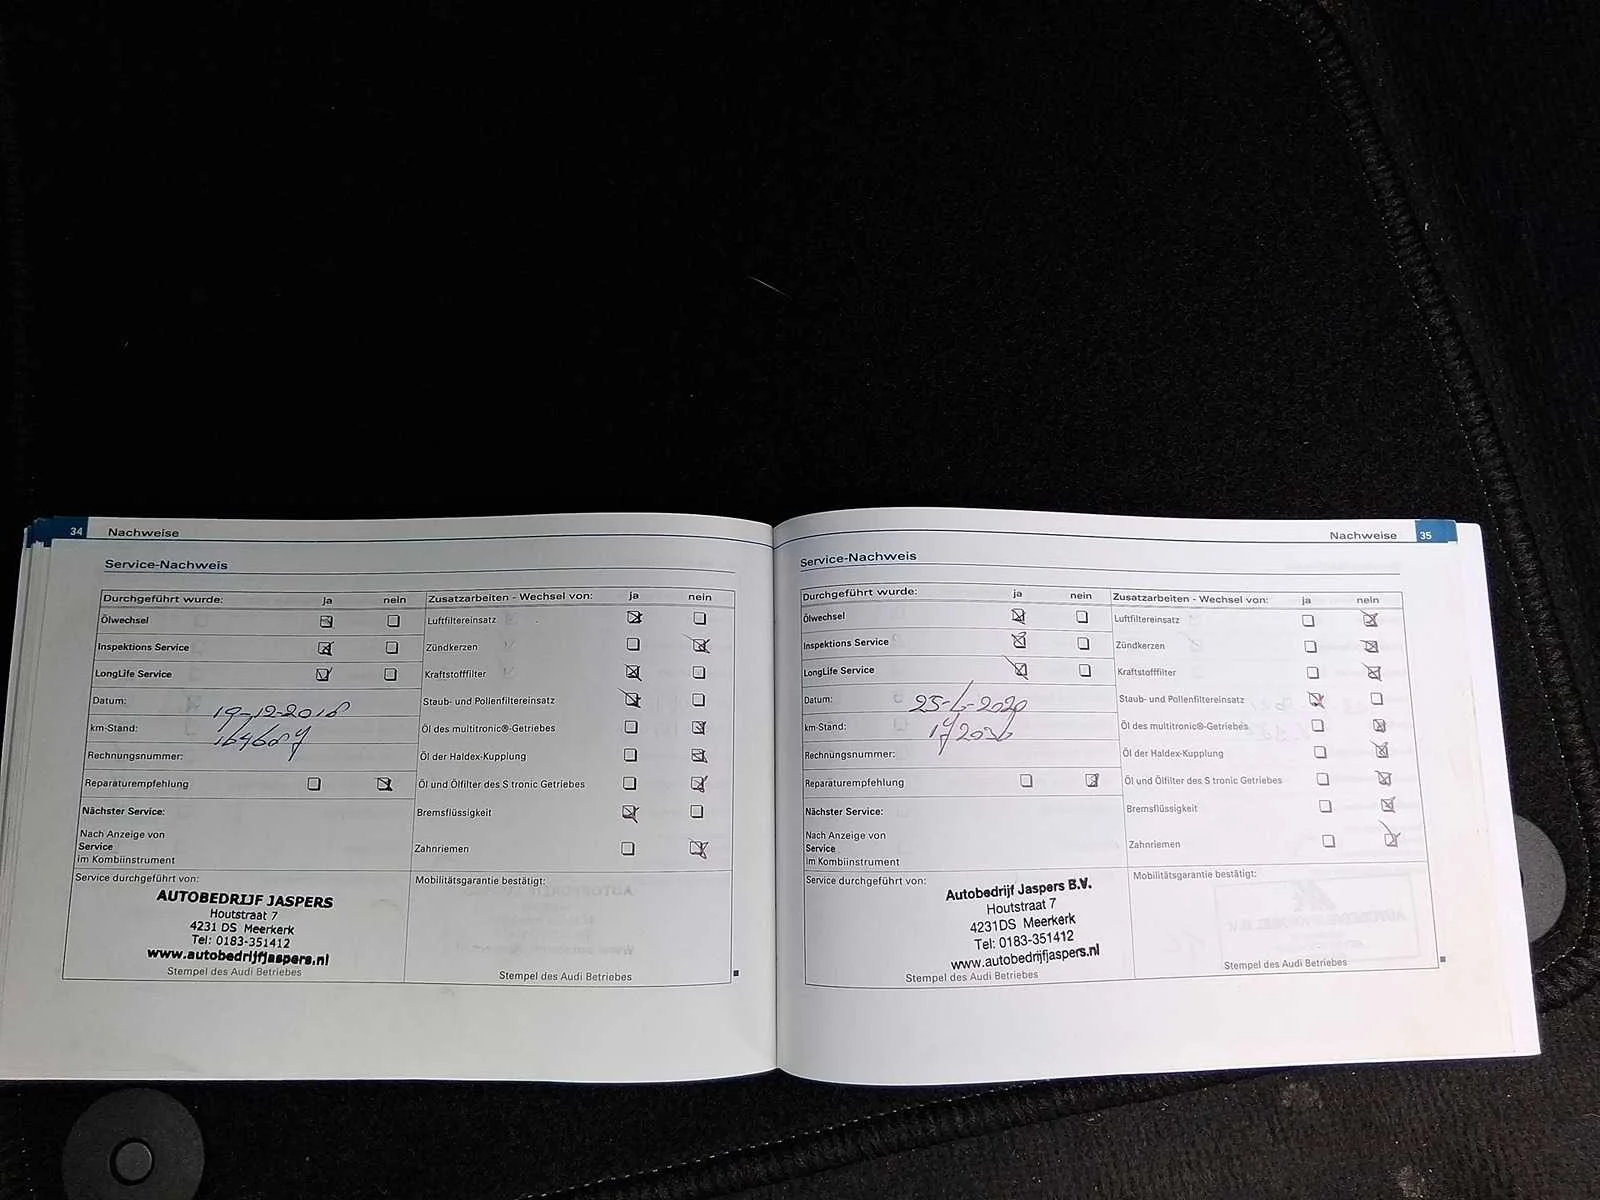 34 Nachweise
Service-Nachweis
Durchgeführt wurde: ja nein
Ölwechsel
Inspektions Service
LongLife Service
Datum: 19-12-2018
km-Stand:
Rechnungsnummer:
Reparaturempfehlung
Nächster Service:
Nach Anzeige von
Service
im Kombiinstrument
Zusatzarbeiten - Wechsel von: ja nein
Luftfiltereinsatz
Zündkerzen
Kraftstofffilter
Staub- und Pollenfiltereinsatz
Öl des multitronic®-Getriebes
Öl der Haldex-Kupplung
Öl und Ölfilter des S tronic Getriebes
Bremsflüssigkeit
Zahnriemen
Service durchgeführt von:
AUTOBEDRIJF JASPERS
Houtstraat 7
4231 DS Meerkerk
Tel: 0183-351412
www.autobedrijfjaspers.nl
Stempel des Audi Betriebes
Mobilitätsgarantie bestätigt:
Stempel des Audi Betriebes
Nachweise 35
Service-Nachweis
Durchgeführt wurde: ja nein
Ölwechsel
Inspektions Service
LongLife Service
Datum: 25-6-2020
km-Stand:
Rechnungsnummer:
Reparaturempfehlung
Nächster Service:
Nach Anzeige von
Service
im Kombiinstrument
Zusatzarbeiten - Wechsel von: ja nein
Luftfiltereinsatz
Zündkerzen
Kraftstofffilter
Staub- und Pollenfiltereinsatz
Öl des multitronic®-Getriebes
Öl der Haldex-Kupplung
Öl und Ölfilter des S tronic Getriebes
Bremsflüssigkeit
Zahnriemen
Service durchgeführt von:
Autobedrijf Jaspers B.V.
Houtstraat 7
4231DS Meerkerk
Tel: 0183-351412
www.autobedrijfjaspers.nl
Stempel des Audi Betriebes
Mobilitätsgarantie bestätigt:
Stempel des Audi Betriebes